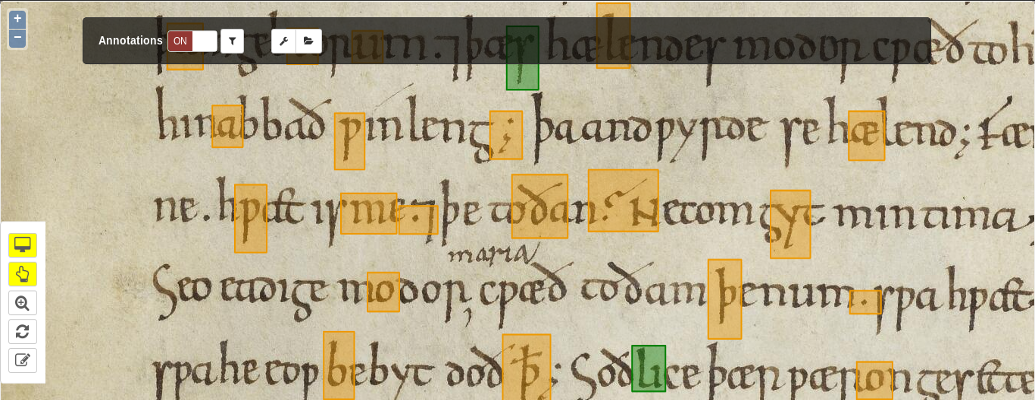 +
−
Annotations ON
⁊ þæs hælendes modor cƿæð to h
hi nabbað ƿin leng; þa andƿyrde se hælend; Fæ
ne. hƿæt is me. ⁊ þe to ðan? Ne com gyt min tima
maria
Seo eadige modor, cƿæð to ðam þenum. sƿa hƿæt
sƿa he eoƿ bebyt doð ꝥ; Soðlice þær ƿæron gesette